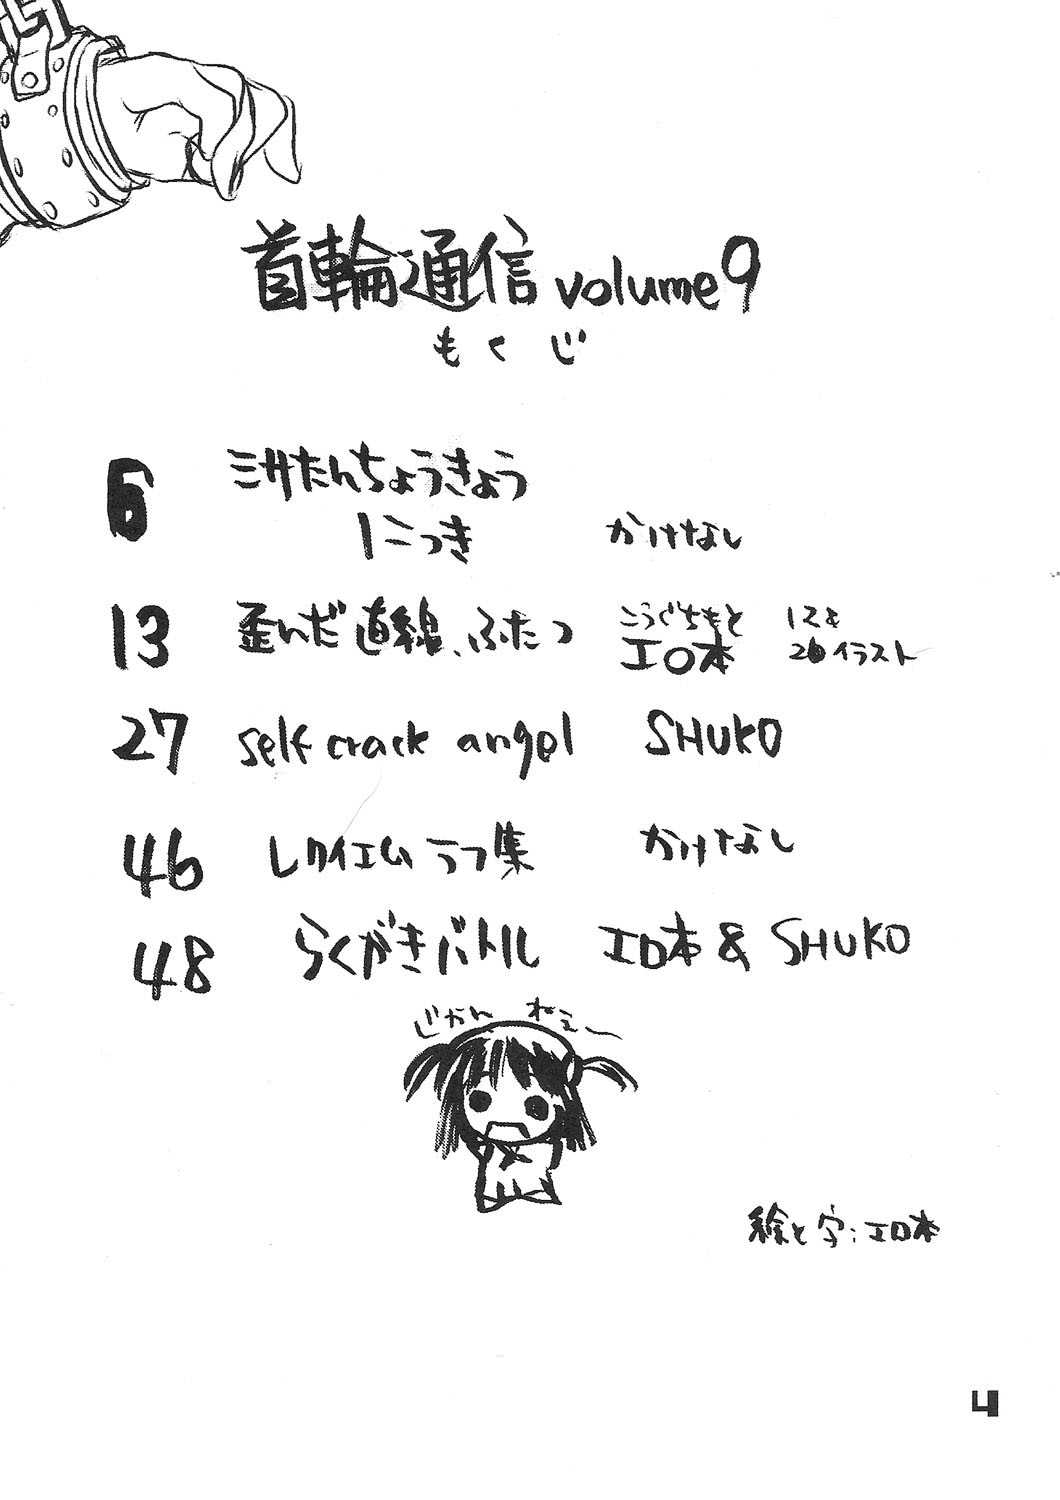 首輪通信 volume9
もくじ
6 三井たんちょうきょう
にっき かけなし
13 歪んだ直線、ふたつ こうぐちもと
エロ本 イラスト
27 self crack angel SHUKO
46 レクイエム ラフ集 かけなし
48 らくがきバトル エロ本 & SHUKO
じかん ねぇ〜
絵と字:エロ本
4